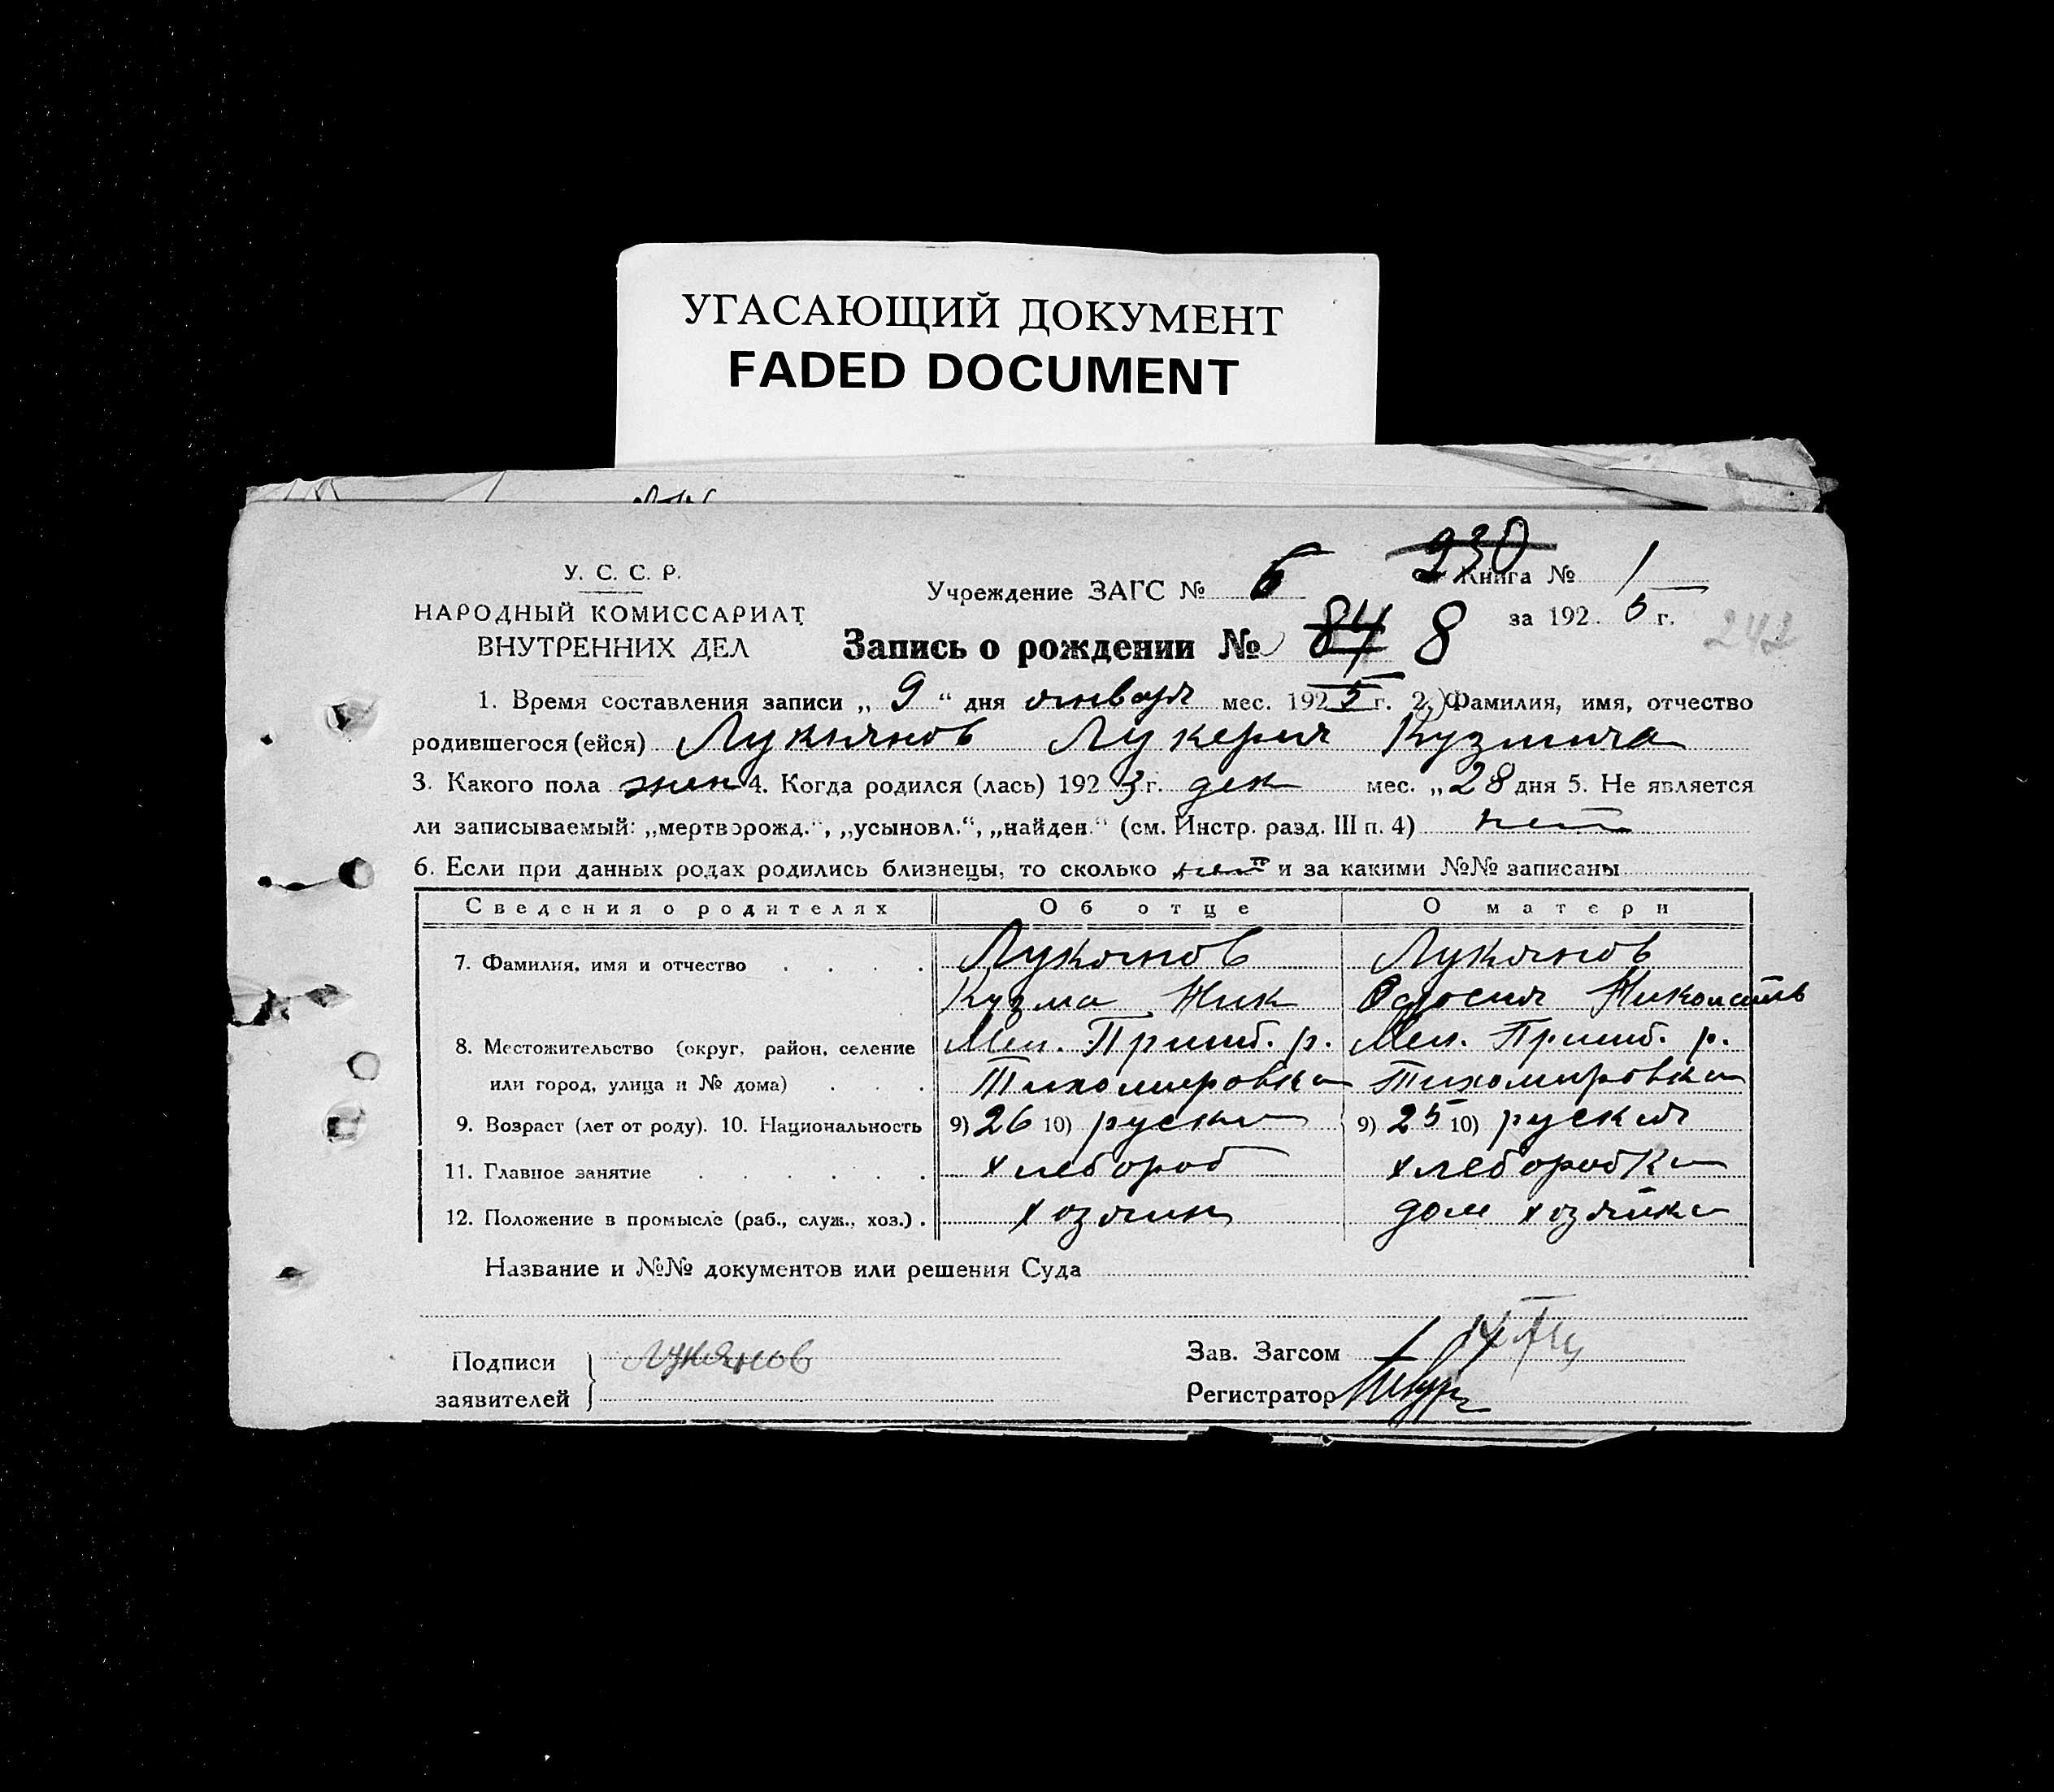 УГАСАЮЩИЙ ДОКУМЕНТ
FADED DOCUMENT
У. С. С. Р.
НАРОДНЫЙ КОМИССАРИАТ
ВНУТРЕННИХ ДЕЛ
Учреждение ЗАГС № 5
230
Книга № 1
за 1925 г.
242
Запись о рождении № 84 8
1. Время составления записи „ 9 “ дня января мес. 1925 г. 2) Фамилия, имя, отчество
родившегося (ейся) Лукянов Лукерия Кузмича
3. Какого пола жен 4. Когда родился (лась) 1923 г. дек мес. „ 28 дня 5. Не является
ли записываемый: „мертворожд.“, „усыновл.“, „найден.“ (см. Инстр. разд. III п. 4) нет
6. Если при данных родах родились близнецы, то сколько нет и за какими №№ записаны
Сведения о родителях Об отце О матери
7. Фамилия, имя и отчество Лукянов Лукянов
Кузма Ник Федосия
8. Местожительство (округ, район, селение Мел. Пришб. р. Мел. Пришб. р.
или город, улица и № дома) Тихомировка Тихомировка
9. Возраст (лет от роду). 10. Национальность 9) 26 10) руски 9) 25 10) руския
11. Главное занятие хлебороб хлеборобка
12. Положение в промысле (раб., служ., хоз.) хозяин дом хозяйка
Название и №№ документов или решения Суда
Подписи
заявителей
Лукянов
Зав. Загсом
Регистратор